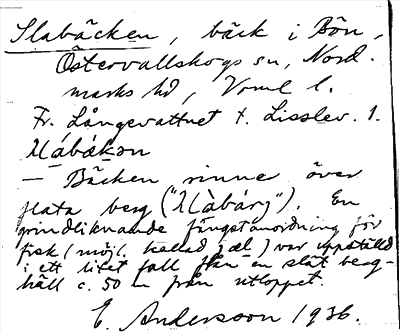 Slabäcken, bäck i Bön,
Östervallskogs sn, Nord-
marks hd, Vrml l.
Fr. Långevattnet t. Lisslev. 1.
— Bäcken rinner över
flata berg ("). En
grindliknande fångstanordning för
fisk (möjl. kallad ) var uppställd
i ett litet fall från en slät berg-
häll c. 50 m från utloppet.
E. Andersson 1936.